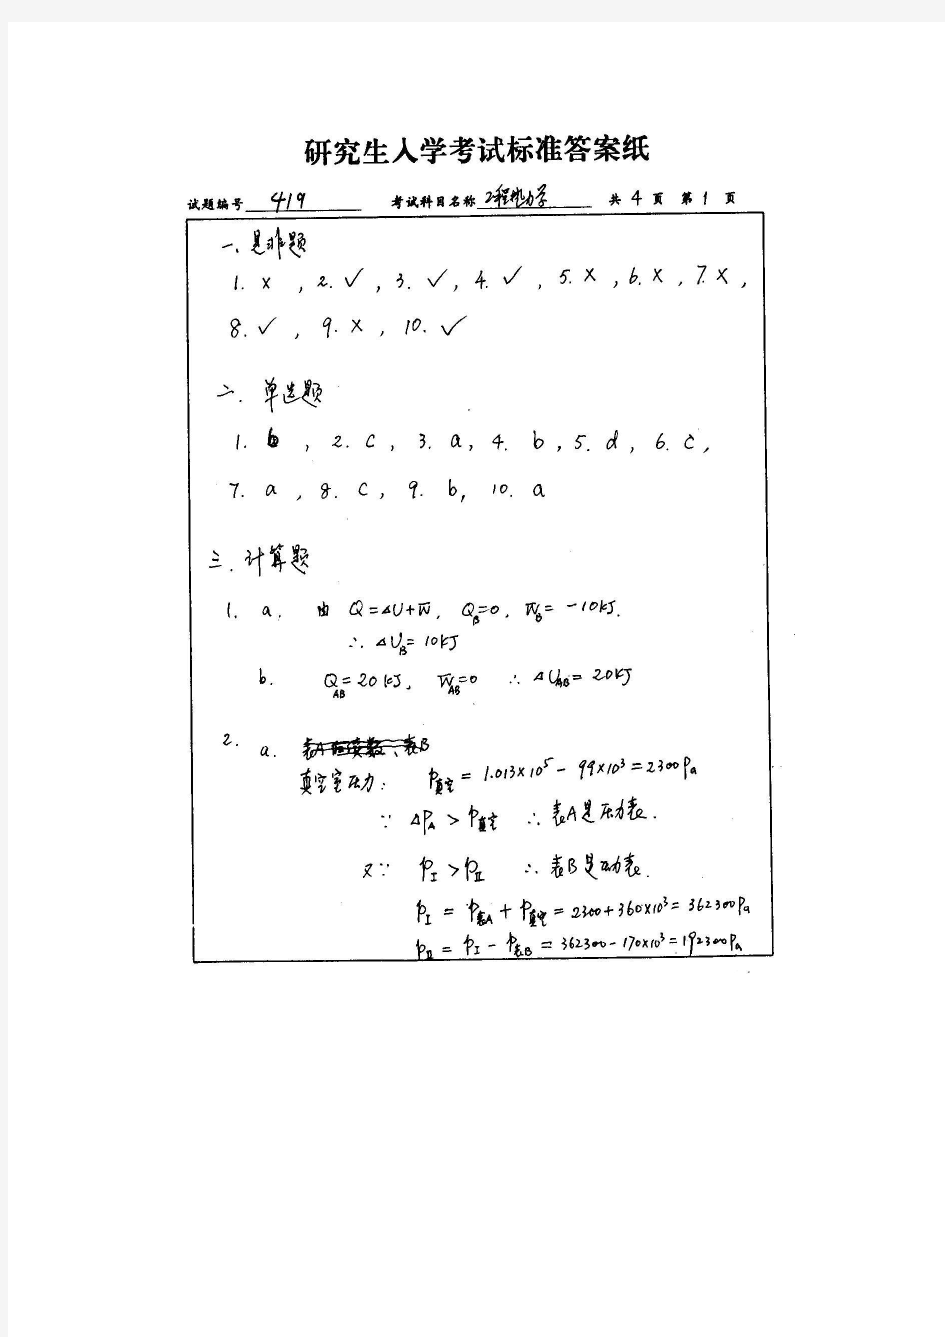 研究生入学考试标准答案纸
试题编号 419 考试科目名称 工程热力学 共 4 页 第 1 页
一、是非题
1. × , 2. ✓ , 3. ✓ , 4. ✓ , 5. × , 6. × , 7. × ,
8. ✓ , 9. × , 10. ✓
二. 单选题
1. b , 2. c , 3. a , 4. b , 5. d , 6. c ,
7. a , 8. c , 9. b , 10. a
三. 计算题
1. a. 由 Q=ΔU+W , Q_B=0 , W_B= -10kJ.
∴ ΔU_B= 10kJ
b. Q_AB=20kJ , W_AB=0 ∴ ΔU_AB= 20kJ
2. a.
真空室压力: P真空 = 1.013×10⁵ - 99×10³ = 2300Pa
∵ ΔP_A > P真空 ∴ 表A是压力表.
又∵ P_I > P_II ∴ 表B是压力表.
P_I = P表A + P真空 = 2300+360×10³ = 362300Pa
P_II = P_I - P表B = 362300-170×10³ = 192300Pa